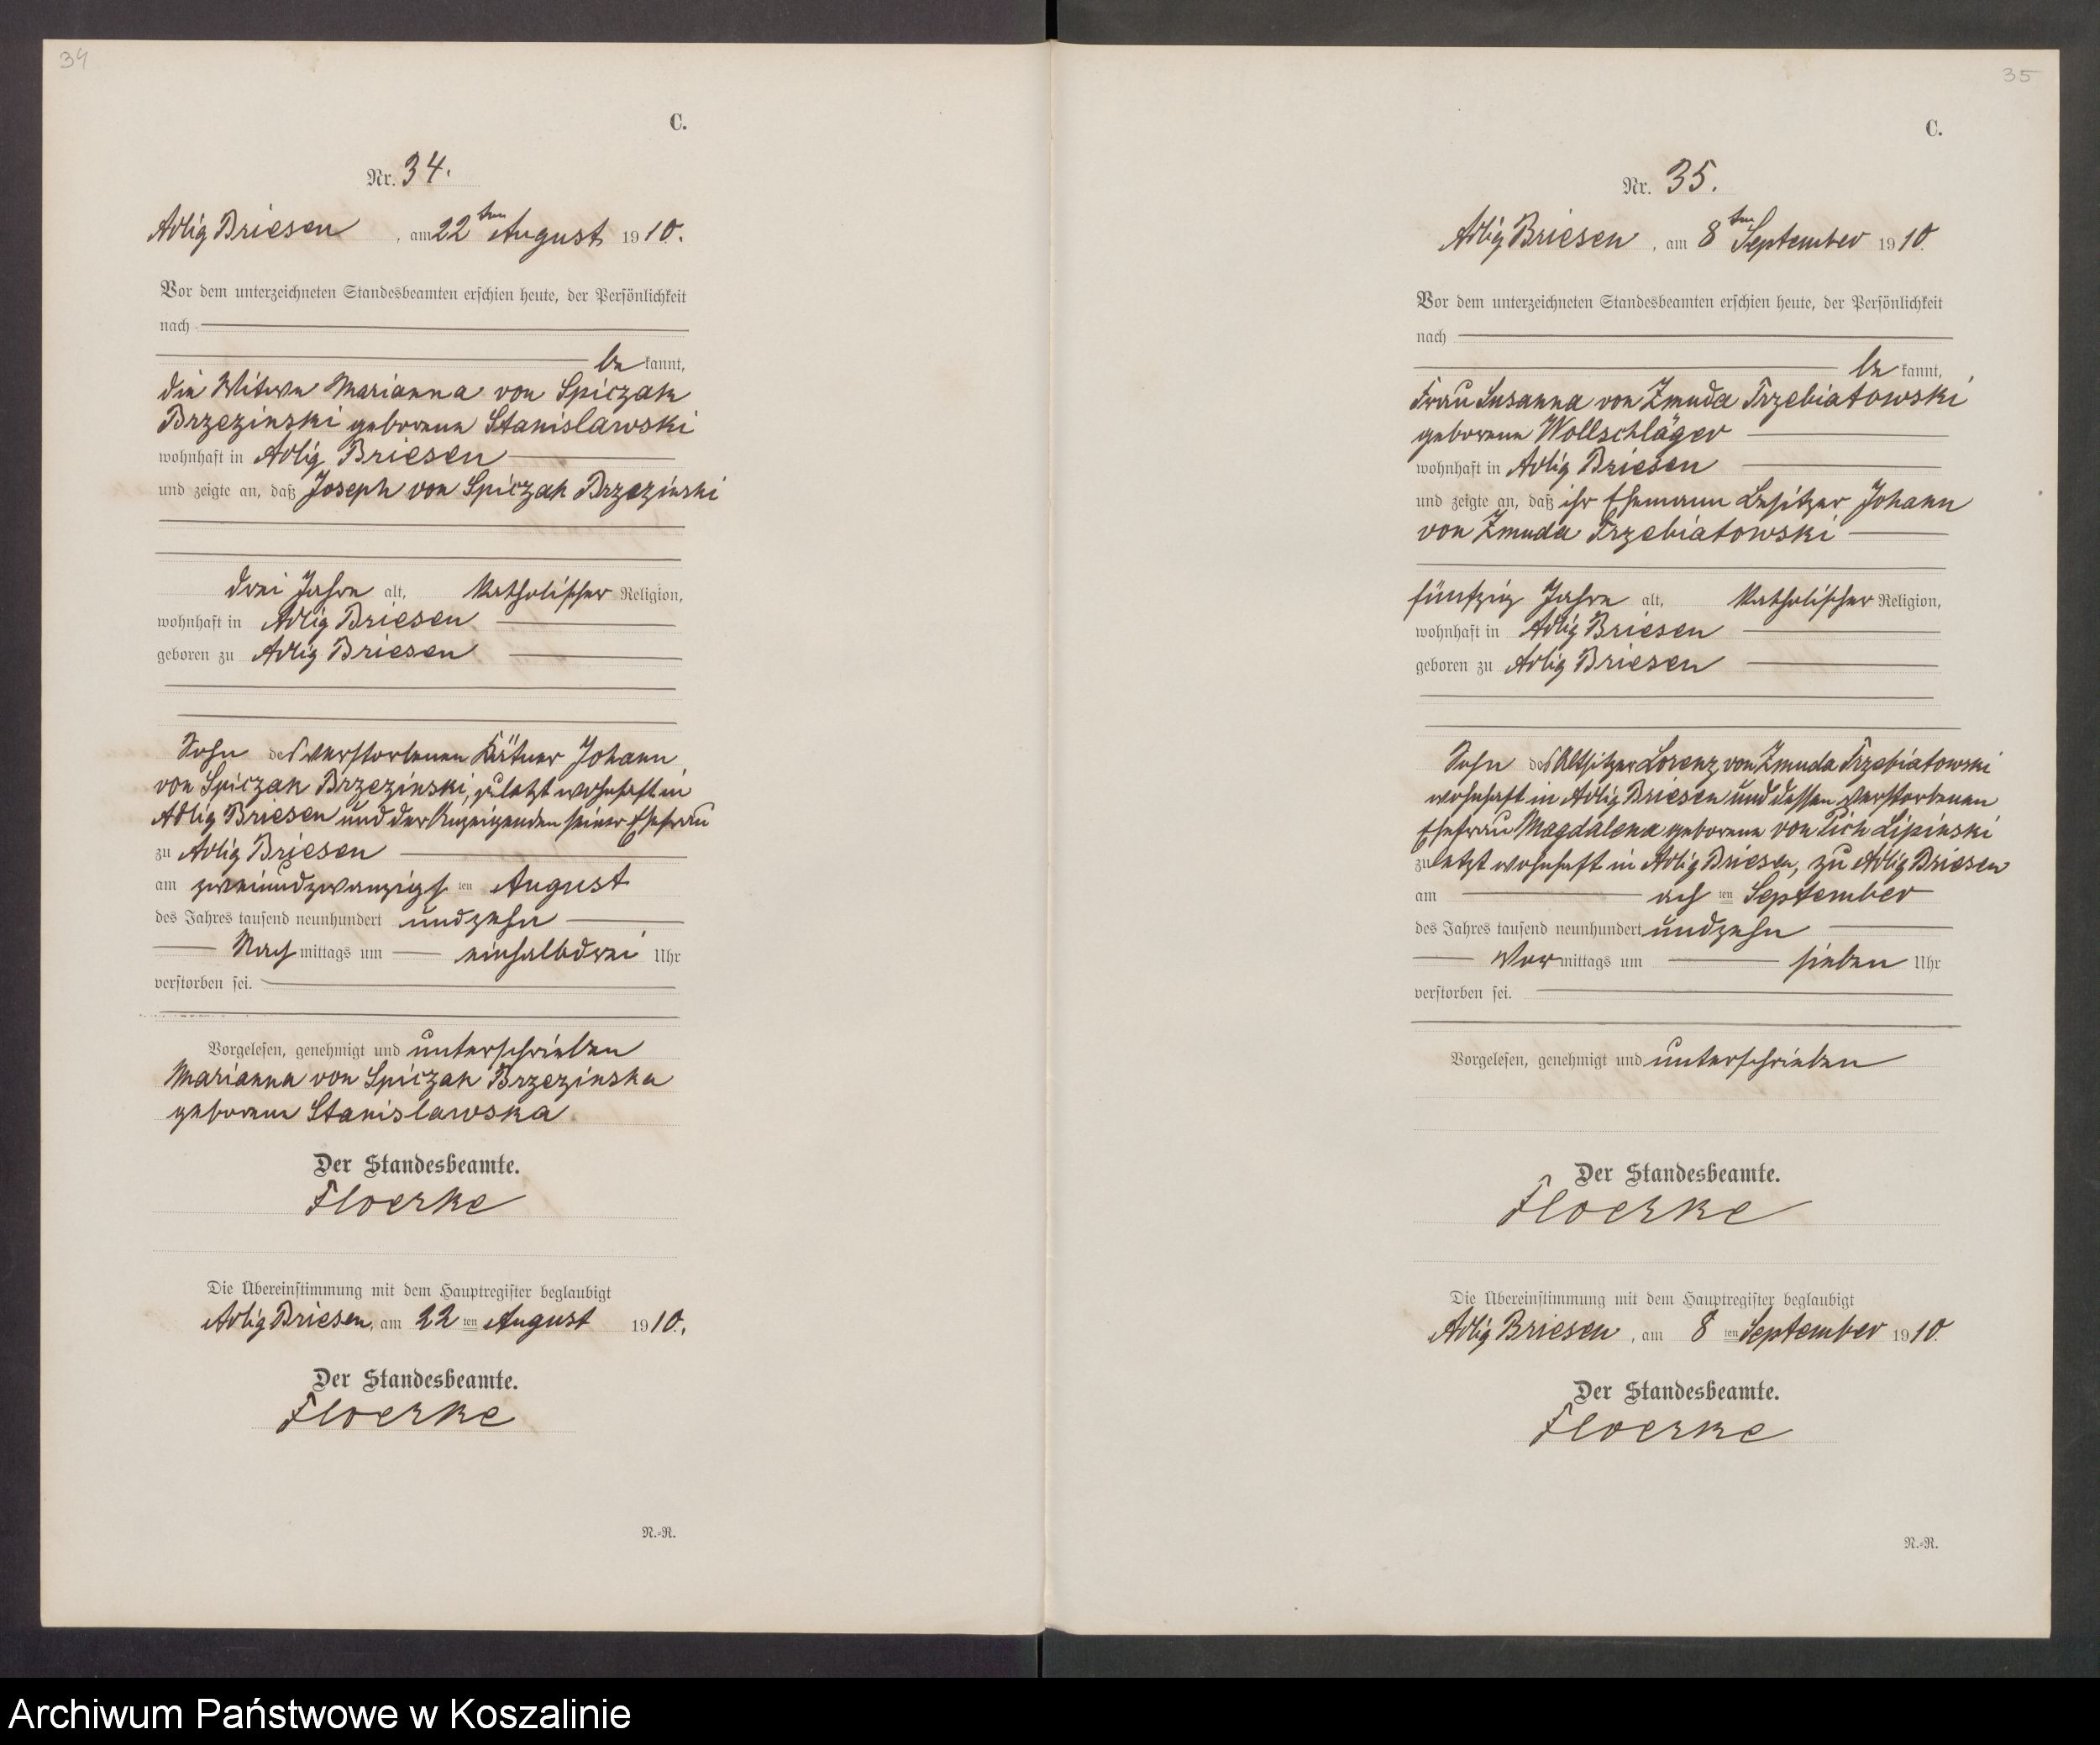 34
C.
Nr. 34.
Adlig Briesen, am 22ten August 1910.
Vor dem unterzeichneten Standesbeamten erschien heute, der Persönlichkeit
nach
be kannt,
die Witwe Marianna von Spiczak
Brzezinski geborene Stanislawski
wohnhaft in Adlig Briesen
und zeigte an, daß Joseph von Spiczak Brzezinski
drei Jahre alt, katholischer Religion,
wohnhaft in Adlig Briesen
geboren zu Adlig Briesen
Sohn des verstorbenen Kätner Johann
von Spiczak Brzezinski, zuletzt wohnhaft in
Adlig Briesen und der Anzeigenden seiner Ehefrau
zu Adlig Briesen
am zweiundzwanzigs ten August
des Jahres tausend neunhundert undzehn
Nach mittags um einhalbdrei Uhr
verstorben sei.
Vorgelesen, genehmigt und unterschrieben
Marianna von Spiczak Brzezinska
geborene Stanislawska
Der Standesbeamte.
Floerke
Die Übereinstimmung mit dem Hauptregister beglaubigt
Adlig Briesen, am 22 ten August 1910.
Der Standesbeamte.
Floerke
N.-R.
35
C.
Nr. 35.
Adlig Briesen, am 8ten September 1910.
Vor dem unterzeichneten Standesbeamten erschien heute, der Persönlichkeit
nach
be kannt,
Frau Susanna von Zmuda Trzebiatowski
geborene Wollschläger
wohnhaft in Adlig Briesen
und zeigte an, daß ihr Ehemann Besitzer Johann
von Zmuda Trzebiatowski
fünfzig Jahre alt, katholischer Religion,
wohnhaft in Adlig Briesen
geboren zu Adlig Briesen
Sohn des Altsitzer Lorenz von Zmuda Trzebiatowski
wohnhaft in Adlig Briesen und dessen verstorbenen
Ehefrau Magdalena geborene von Lipinski
zuletzt wohnhaft in Adlig Briesen, zu Adlig Briesen
am ach ten September
des Jahres tausend neunhundert undzehn
Vor mittags um sieben Uhr
verstorben sei.
Vorgelesen, genehmigt und unterschrieben
Der Standesbeamte.
Floerke
Die Übereinstimmung mit dem Hauptregister beglaubigt
Adlig Briesen, am 8 ten September 1910.
Der Standesbeamte.
Floerke
N.-R.
Archiwum Państwowe w Koszalinie